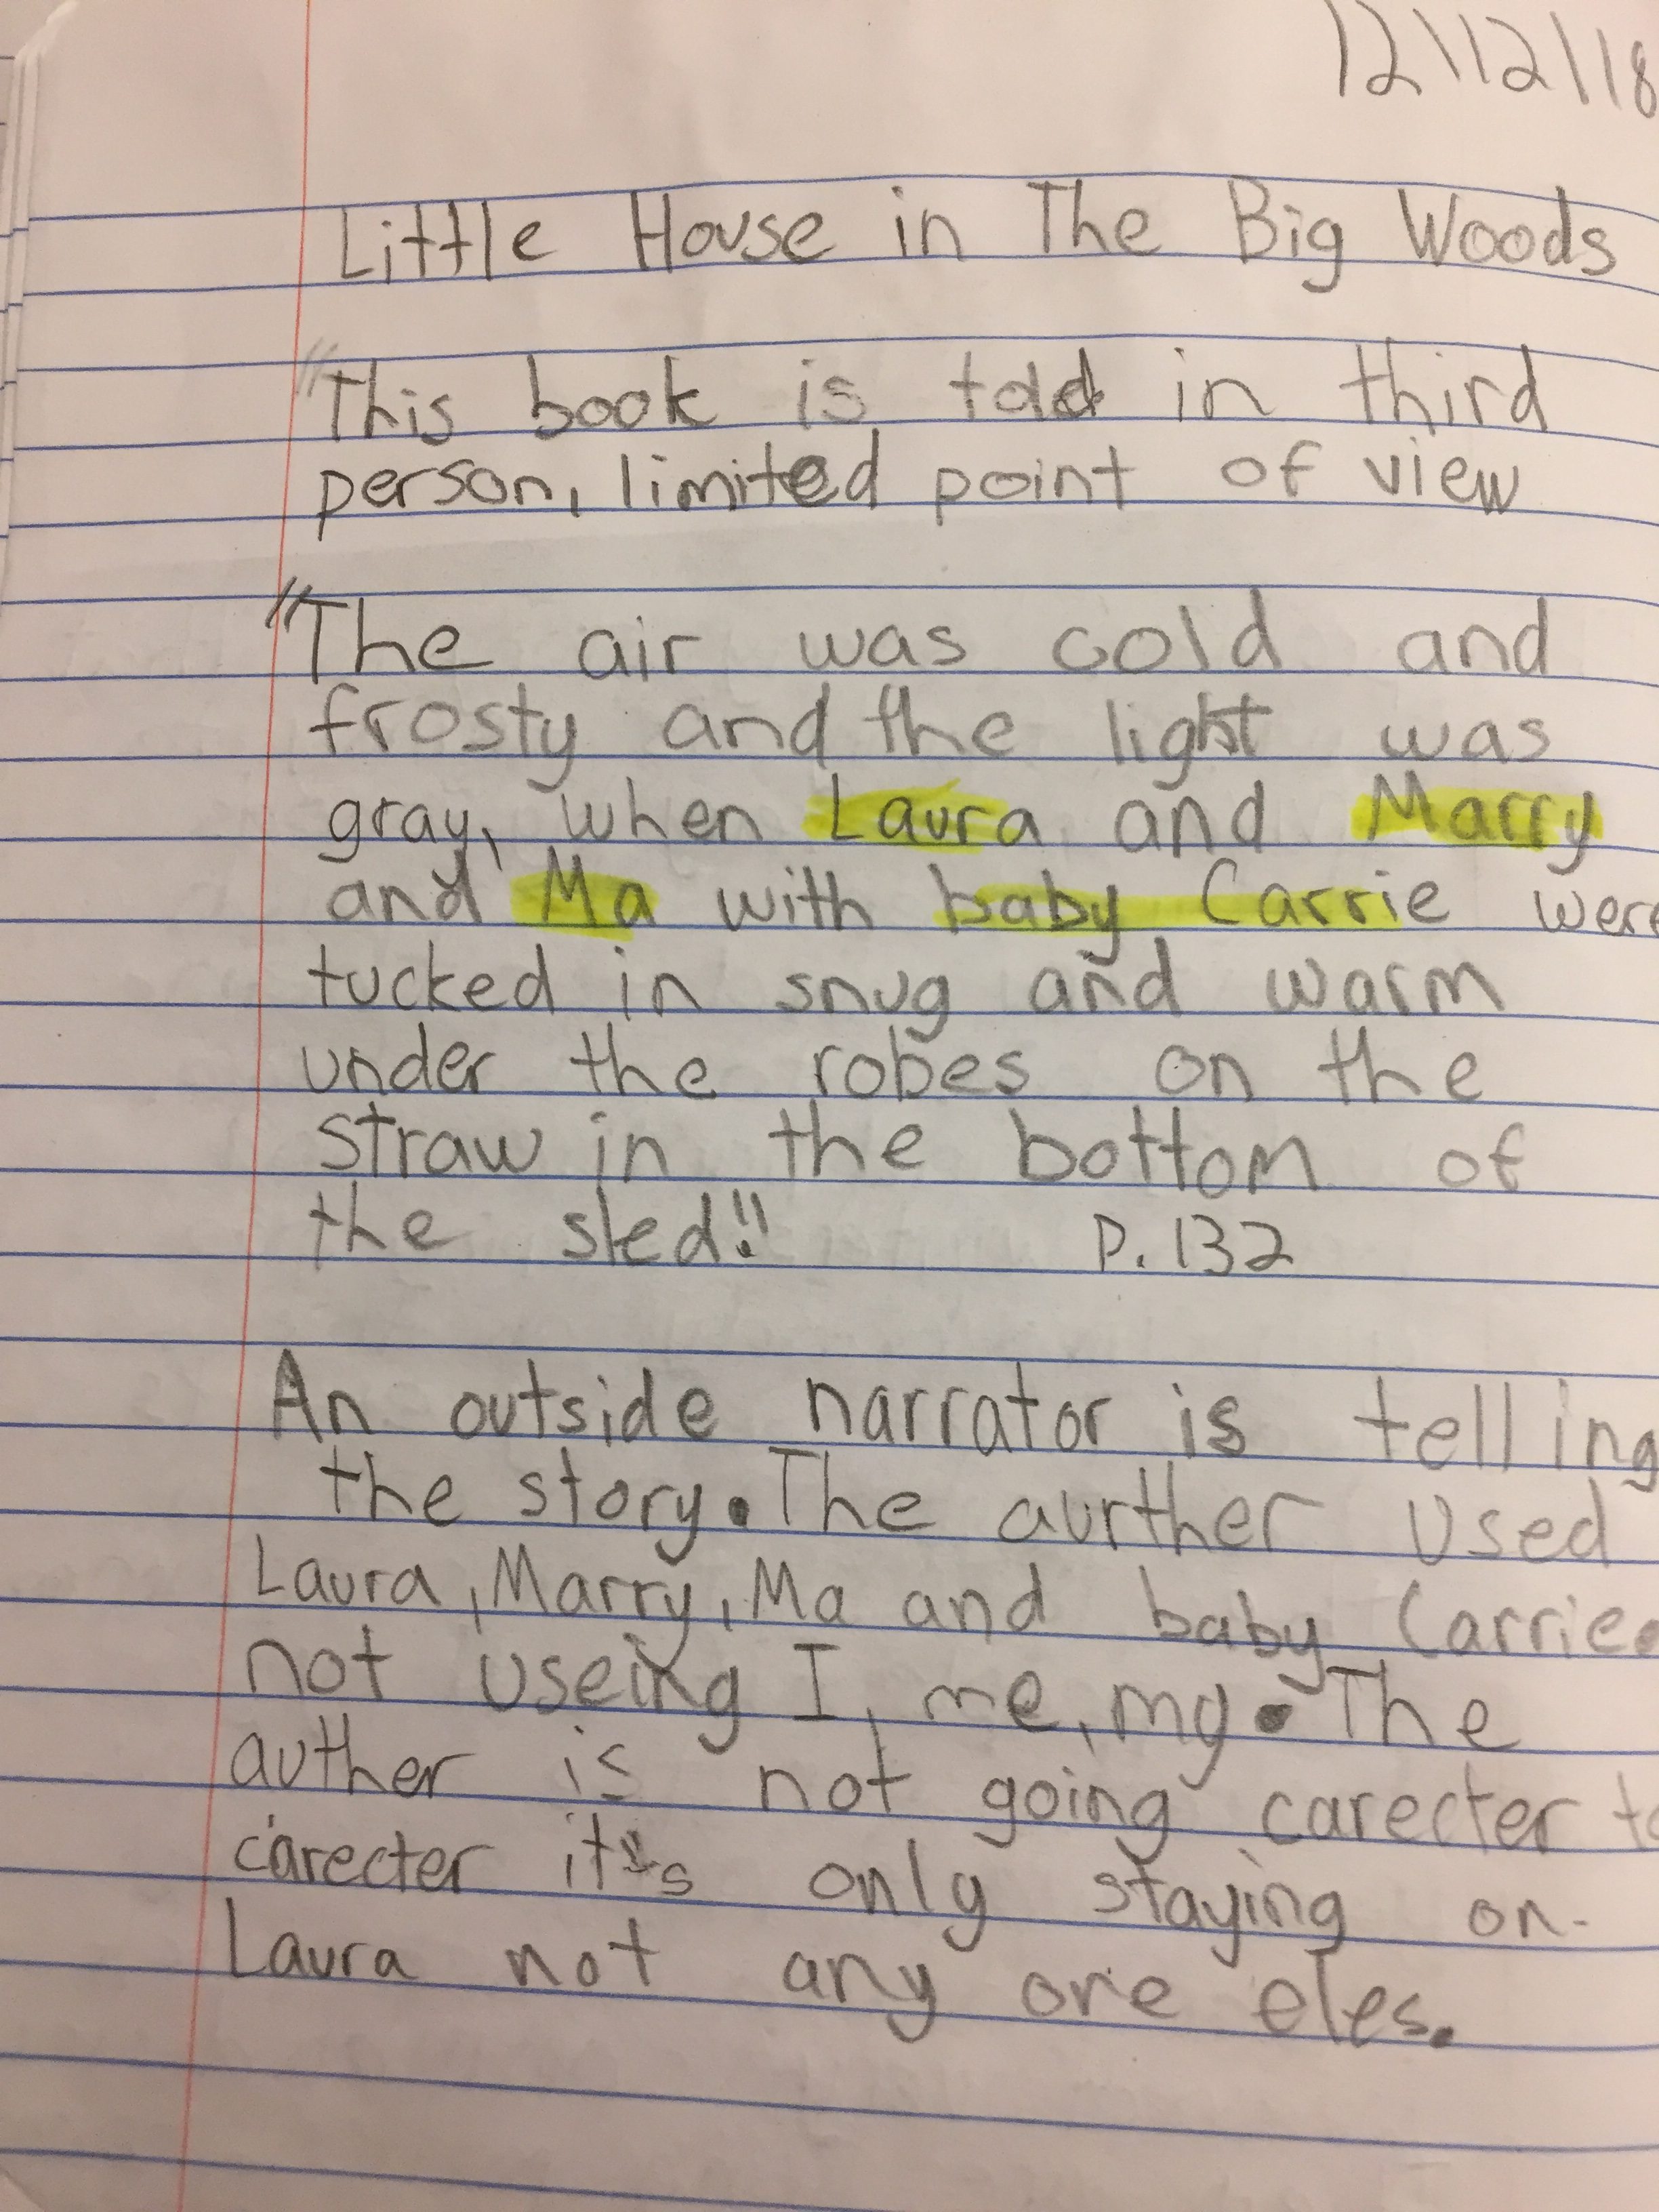 12\12\18
Little House in The Big Woods
"This book is told in third
person, limited point of view
"The air was cold and
frosty and the light was
gray, when Laura and Marry
and Ma with baby Carrie were
tucked in snug and warm
under the robes on the
straw in the bottom of
the sled!"
P. 132
An outside narrator is telling
the story. The aurther used
Laura, Marry, Ma and baby Carrie.
not useing I, me, my. The
auther is not going carecter to
carecter it's only staying on
Laura not any one eles.